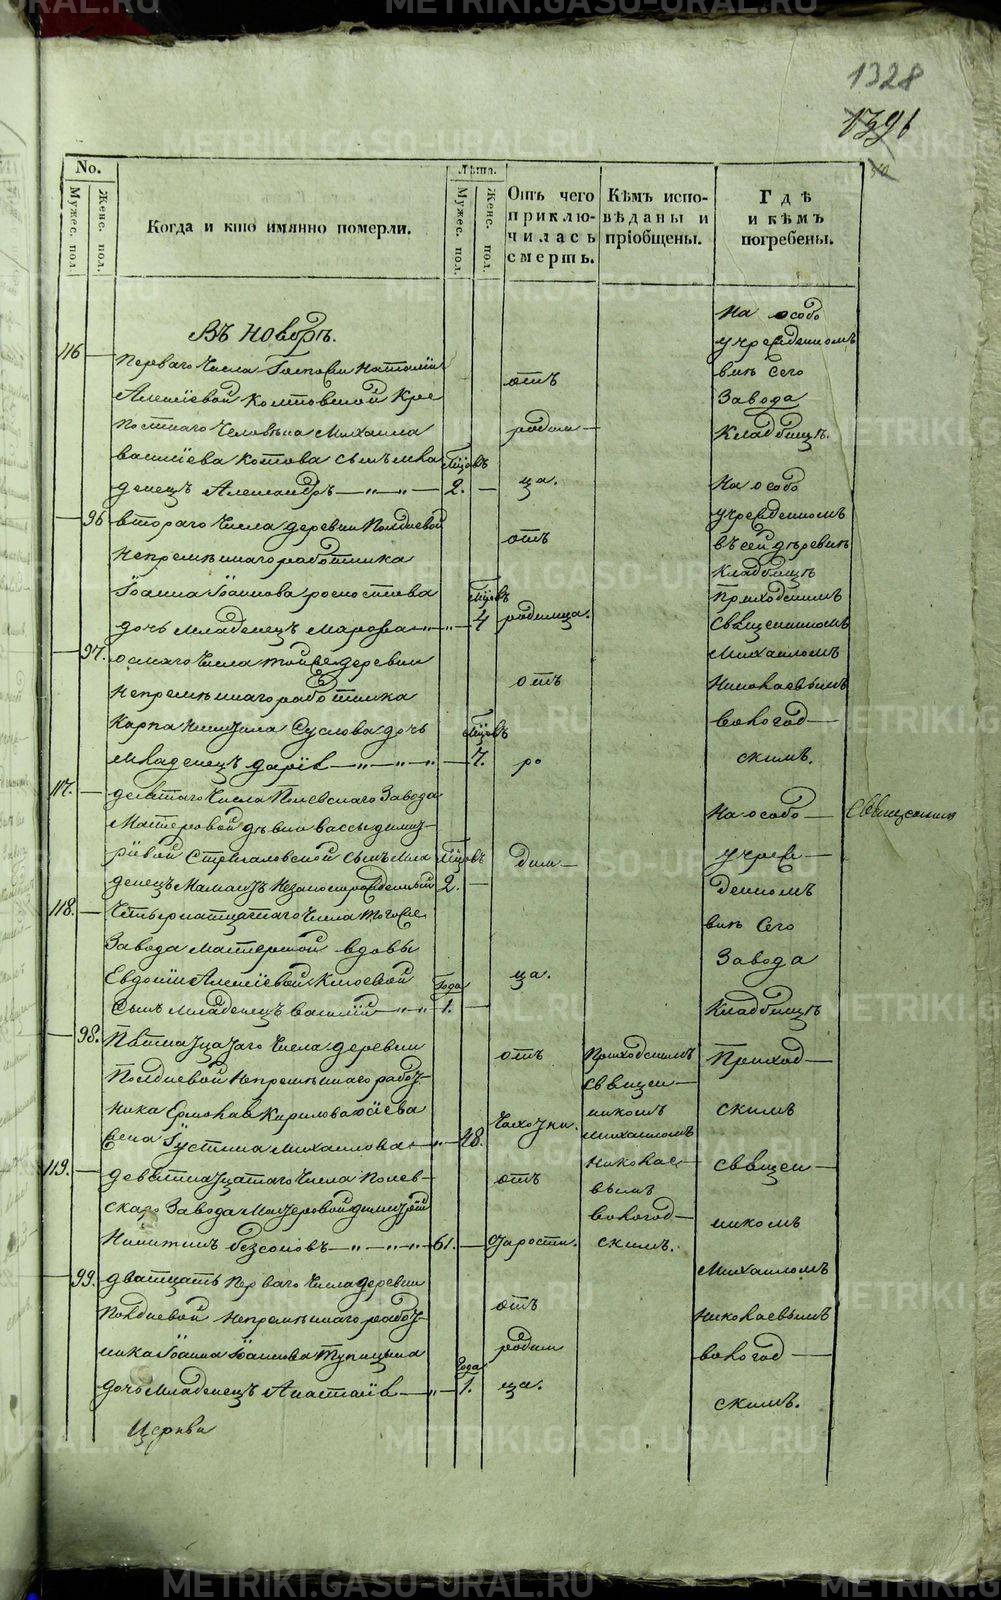 1328
1391
No.
Мужес. пол.
Женс. пол.
Когда и кто имянно померли.
Лѣта.
Мужес. пол.
Женс. пол.
Отъ чего приклю-
чилась смерть.
Кѣмъ испо-
вѣданы и
пріобщены.
Гдѣ
и кѣмъ
погребены.
Въ Ноябрѣ.
116
перваго числа Госпожи Наталіи
Алексіевой Колтовской Кре
постнаго человѣка Михаила
Василіева Котова сынъ мла
денецъ Александръ
2.
отъ
родим
ца.
На особо
учрежденномъ
близъ сего
Завода
Кладбищѣ.
96
втораго числа деревни Полдневой
непремѣннаго работника
Іоанна Іоаннова
дочь младенецъ Марфа
4
отъ
родимца.
На особо
учрежденномъ
въ сей деревнѣ
кладбищѣ
Приходскимъ
священникомъ
Михаиломъ
Николаевымъ
Вологод
скимъ.
97.
осмаго числа той же деревни
непремѣннаго работника
Карпа Суслова дочь
младенецъ Дарія
7.
отъ
ро
117.
девятаго числа Полевскаго Завода
Мастеровой дѣвки Вассы Димит
ріевой сынъ мла
денецъ незаконнорожденный
2.
дим
На особо
учреж
денномъ
близъ сего
Завода
Кладбищѣ
Священник
118.
Четвернатцатаго числа тогоже
Завода мастерской вдовы
Евдокіи Алексіевой Клюевой
сынъ младенецъ Василій
Года
1.
ца.
98.
Пятнатцатаго числа деревни
Полдневой непремѣннаго работ
ника Ермолая Кирилова
жена Іустина Михаилова
48.
отъ
Чахотки.
Приходскимъ
священ
никомъ
Михаиломъ
Николае
вымъ
Вологод
скимъ.
Приход
скимъ
священ
никомъ
Михаиломъ
Николаевымъ
Вологод
скимъ.
119.
девятнатцатаго числа Полев
скаго Завода Мастеровой Димитрій
Никитинъ Безсоновъ
61.
отъ
старости.
99.
дватцать перваго числа деревни
Полдневой непремѣннаго работ
ника Іоанна Іоаннова Тупицына
дочь младенецъ Анастасія
Года
1.
отъ
родим
ца.
Церкви
METRIKI.GASO-URAL.RU